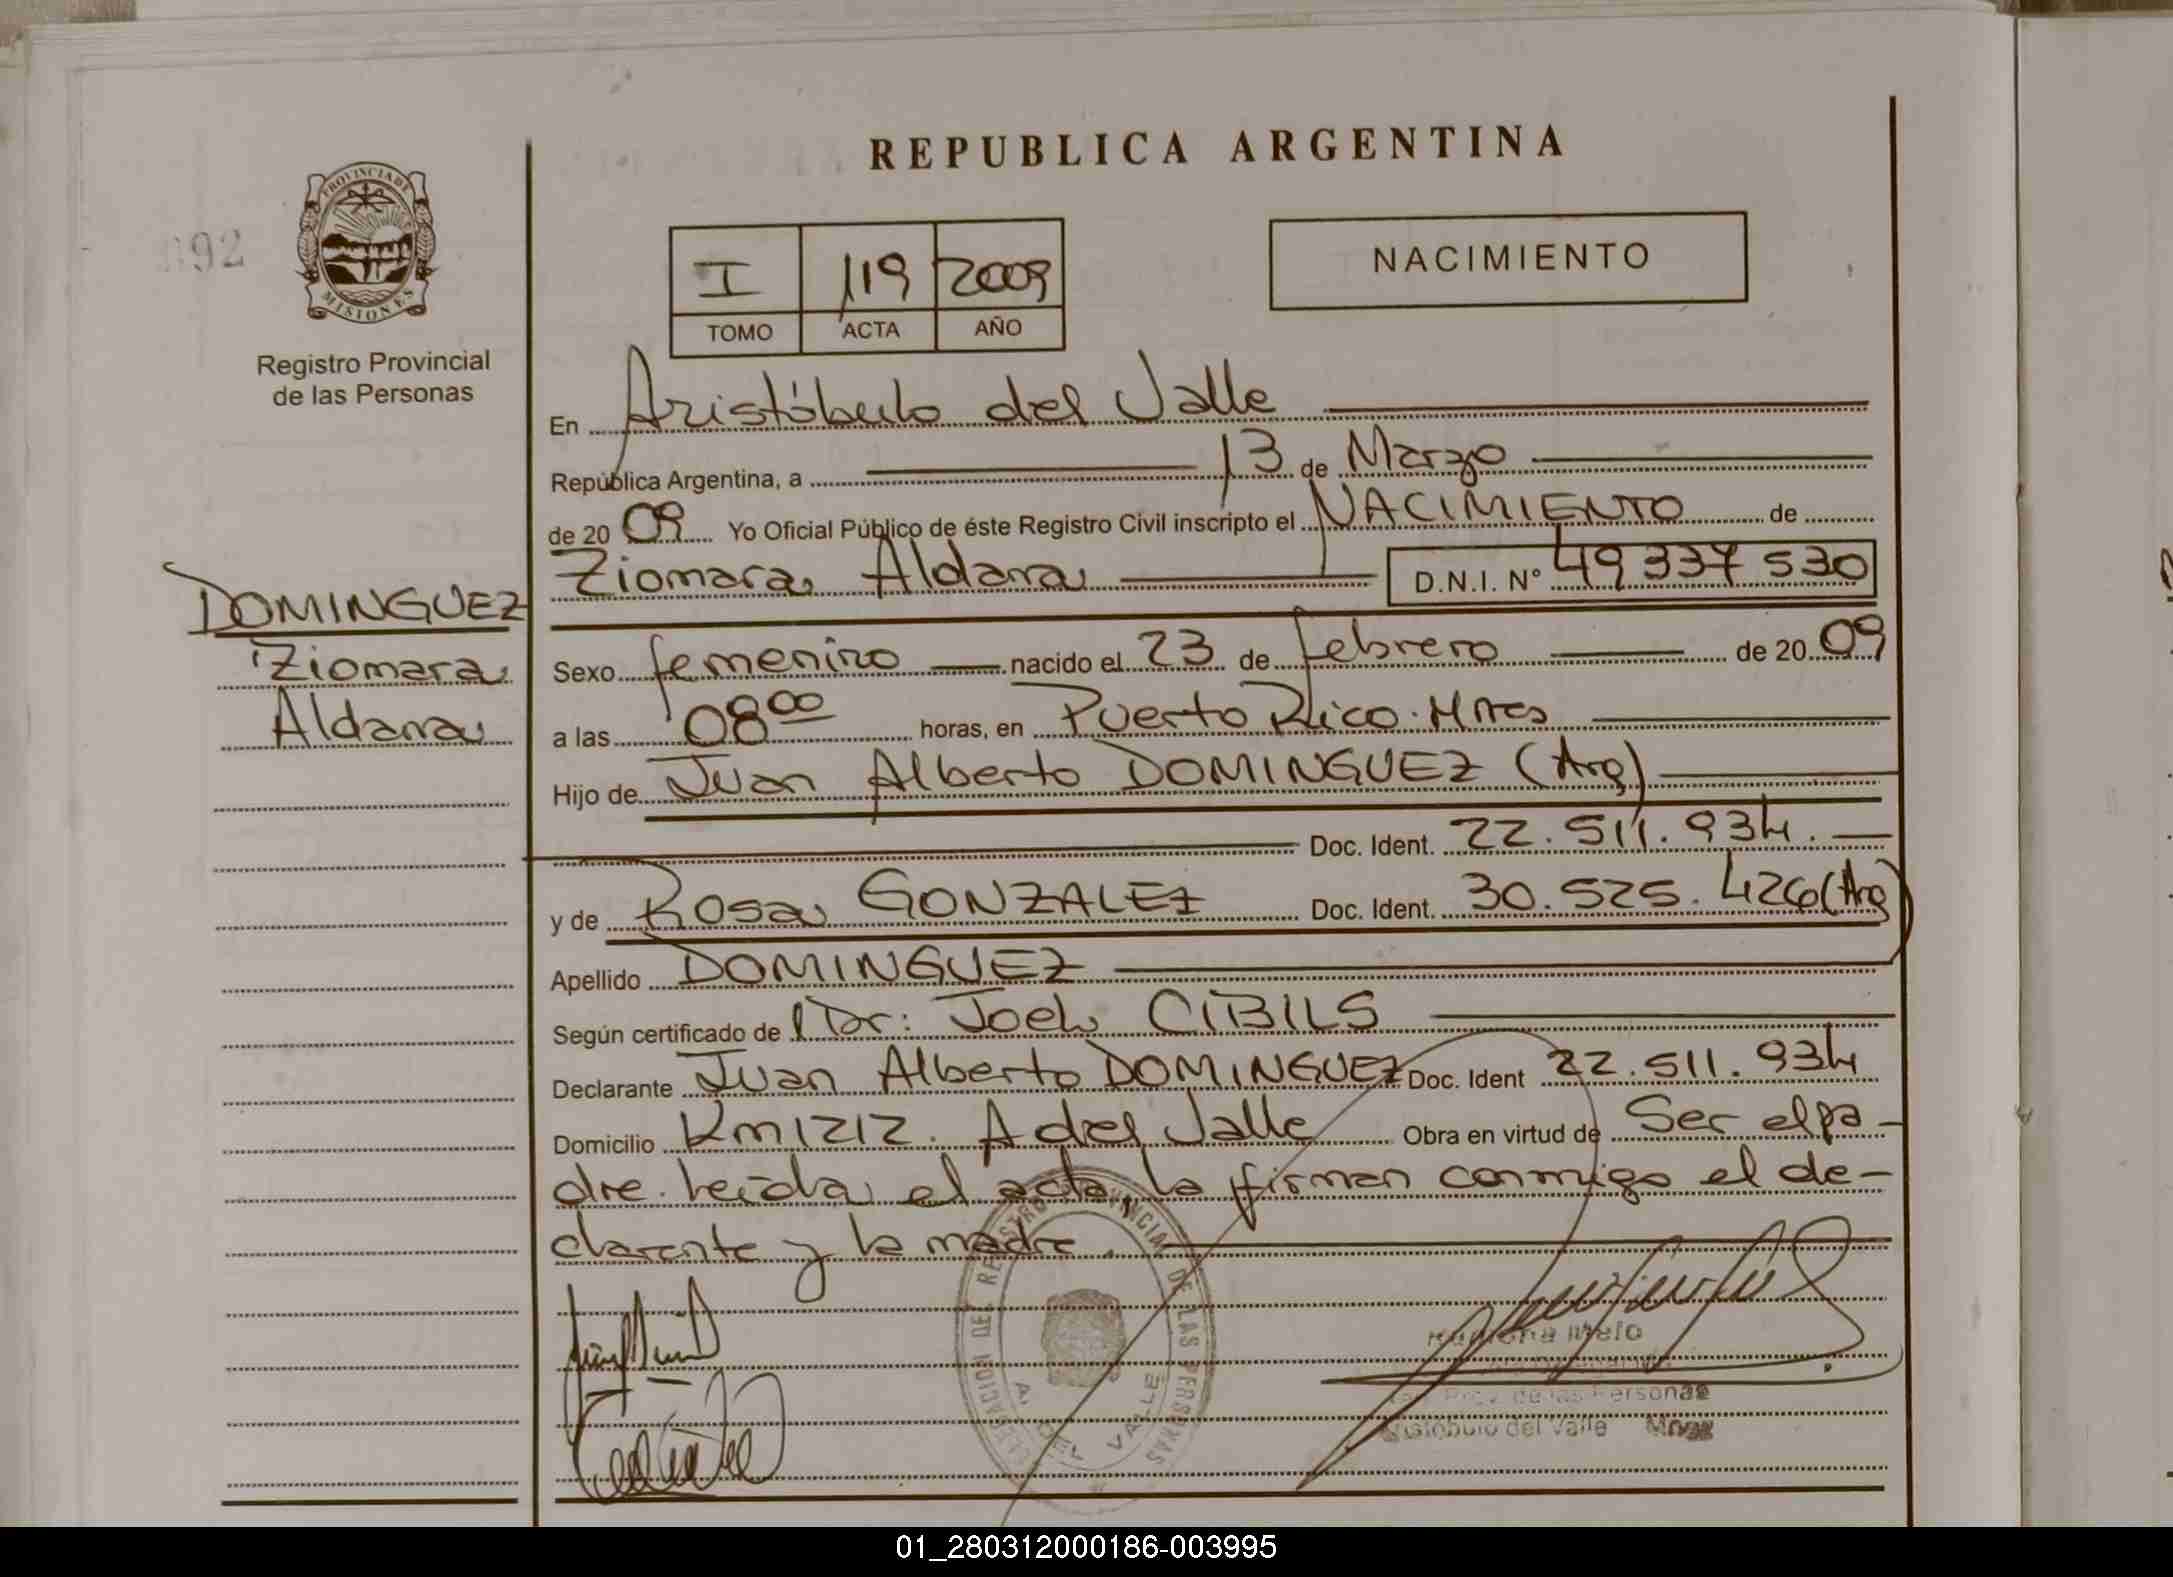 REPUBLICA ARGENTINA
892
PROVINCIA DE MISIONES
Registro Provincial
de las Personas
I 119 2009
TOMO ACTA AÑO
NACIMIENTO
En Aristóbulo del Valle
República Argentina, a 13 de Marzo
de 20 09 Yo Oficial Público de éste Registro Civil inscripto el NACIMIENTO de
Ziomara Aldana D.N.I. Nº 49 337 530
DOMINGUEZ
Ziomara
Aldana
Sexo femenino nacido el 23 de febrero de 20 09
a las 08 00 horas, en Puerto Rico. Mnes
Hijo de Juan Alberto DOMINGUEZ (Arg)
Doc. Ident. 22.511.934.
y de Rosa GONZALEZ Doc. Ident. 30.525.426 (Arg)
Apellido DOMINGUEZ
Según certificado de Dr: Joel CIBILS
Declarante Juan Alberto DOMINGUEZ Doc. Ident 22.511.934
Domicilio Km 1212. A del Valle Obra en virtud de Ser el pa-
dre. leída el acta, la firman conmigo el de-
clarante y la madre.
DELEGACION DEL REGISTRO PROVINCIAL DE LAS PERSONAS
A. DEL VALLE
Ramona Melo
Prov. de las Personas
Aristóbulo del Valle Mnes
01_280312000186-003995